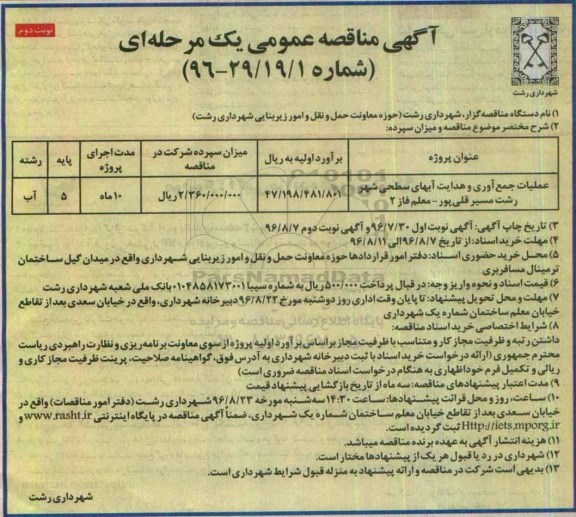 نوبت دوم
آگهی مناقصه عمومی یک مرحله‌ای
(شماره ۹۶-۲۹/۱۹/۱)
شهرداری رشت
۱) نام دستگاه مناقصه‌گزار، شهرداری رشت (حوزه معاونت حمل و نقل و امور زیربنایی شهرداری رشت)
۲) شرح مختصر موضوع مناقصه و میزان سپرده:
عنوان پروژه | برآورد اولیه به ریال | میزان سپرده شرکت در مناقصه | مدت اجرای پروژه | پایه | رشته
عملیات جمع‌آوری و هدایت آبهای سطحی شهر رشت مسیر قلی‌پور - معلم فاز ۲ | ۴۷/۱۹۸/۴۸۱/۸۰۱ | ۲/۳۶۰/۰۰۰/۰۰۰ ریال | ۱۰ ماه | ۵ | آب
۳) تاریخ چاپ آگهی: آگهی نوبت اول ۹۶/۷/۳۰ و آگهی نوبت دوم ۹۶/۸/۷
۴) مهلت خرید اسناد: از تاریخ ۹۶/۸/۷ الی ۹۶/۸/۱۱
۵) محل خرید حضوری اسناد: دفتر امور قراردادها حوزه معاونت حمل و نقل و امور زیربنایی شهرداری واقع در میدان گیل ساختمان
ترمینال مسافربری
۶) قیمت اسناد و نحوه واریز وجه: در قبال پرداخت ۵۰۰/۰۰۰ ریال به شماره سیبا ۰۱۰۴۸۵۸۱۷۳۰۰۱ بانک ملی شعبه شهرداری رشت
۷) مهلت و محل تحویل پیشنهاد: تا پایان وقت اداری روز دوشنبه مورخ ۹۶/۸/۲۲ دبیرخانه شهرداری، واقع در خیابان سعدی بعد از تقاطع
خیابان معلم ساختمان شماره یک شهرداری
۸) شرایط اختصاصی خرید اسناد مناقصه:
داشتن رتبه و ظرفیت مجاز کار و متناسب با ظرفیت مجاز براساس برآورد اولیه پروژه از سوی معاونت برنامه‌ریزی و نظارت راهبردی ریاست
محترم جمهوری (ارائه درخواست خرید اسناد با ثبت دبیرخانه شهرداری به آدرس فوق، گواهینامه صلاحیت، پرینت ظرفیت مجاز کاری و
ریالی و تکمیل فرم خوداظهاری به هنگام درخواست اسناد مناقصه ضروری است)
۹) مدت اعتبار پیشنهادهای مناقصه: سه ماه از تاریخ بازگشایی پیشنهاد قیمت
۱۰) ساعت، روز و محل قرائت پیشنهادها: ساعت ۱۴:۳۰ سه‌شنبه مورخه ۹۶/۸/۲۳ شهرداری رشت (دفتر امور مناقصات) واقع در
خیابان سعدی بعد از تقاطع خیابان معلم ساختمان شماره یک شهرداری، ضمناً آگهی مناقصه در پایگاه اینترنتی www.rasht.ir و
Http://iets.mporg.ir ثبت گردیده است.
۱۱) هزینه انتشار آگهی به عهده برنده مناقصه میباشد.
۱۲) شهرداری در رد یا قبول هر یک از پیشنهادها مختار است.
۱۳) بدیهی است شرکت در مناقصه و ارائه پیشنهاد به منزله قبول شرایط شهرداری است.
شهرداری رشت
ParsNamadData